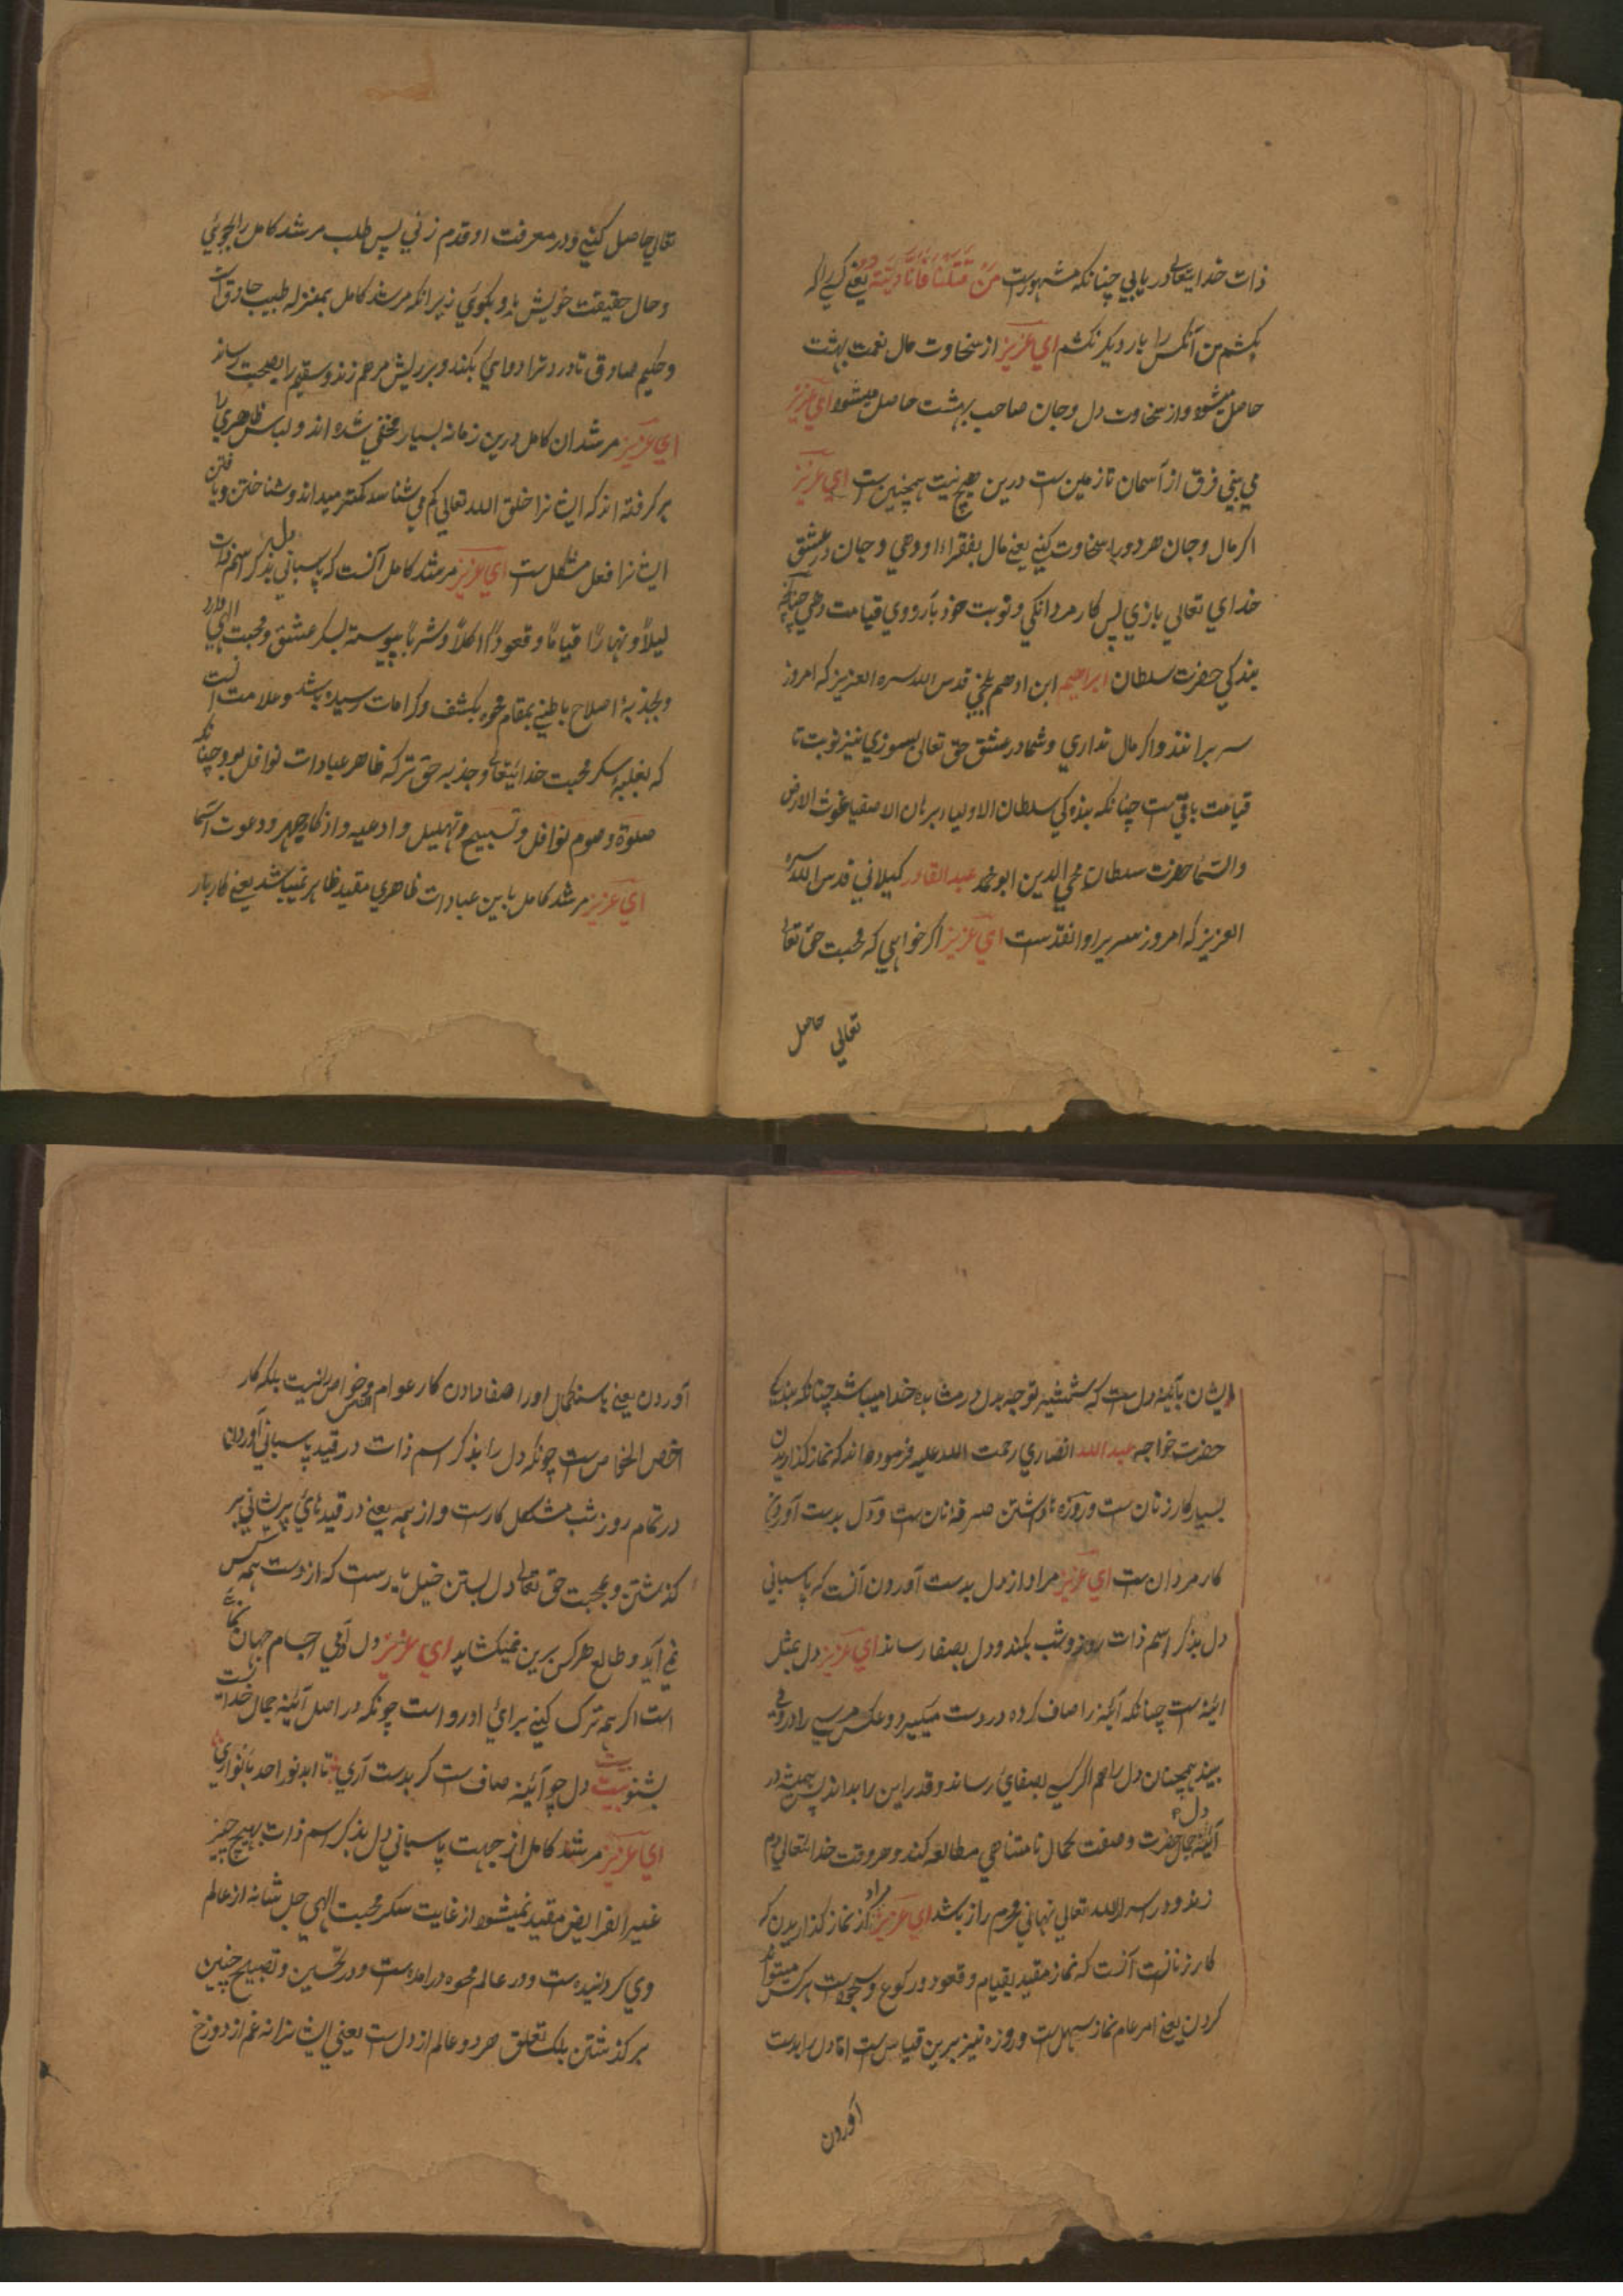 ذات خدایتعالی در یابی چنانکه مشهورست من قتلنا فانا دیته یعنی کسی را که
بکشم من آنکس را بار دیگر نکشم ای عزیز از سخاوت مال نعمت بهشت
حاصل میشود و از سخاوت دل و جان صاحب بهشت حاصل میشود ای عزیز
می بینی فرق از آسمان تا زمین ست درین هیچ نیت همچنین ست ای عزیز
اکر مال و جان هر دو را سخاوت کنی یعنی مال بفقراء او دهی و جان در عشق
خدای تعالی بازی پس کار مردانکی و نوبت خود بآرووی قیامت دهی چنانکه
بندکی حضرت سلطان ابراهیم ابن ادهم بلخی قدس الله سره العزیز که امروز
سر برانند و اکر مال نداری و شما در عشق حق تعالی بسوزی نیز نوبت تا
قیامت باقی ست چنانکه بندکی سلطان الاولیا و برهان الاصفیا غوث الارض
والسما حضرت سلطان محی الدین ابو محمد عبد القادر کیلانی قدس الله سره
العزیز که امروز سریر اوانفدست ای عزیز اکر خواهی که محبت حق تعالی
تعالی حاصل
تعالی حاصل کنی و در معرفت او قدم زنی پس طلب مرشد کامل را بجوئی
و حال حقیقت خویش بدو بکوئی زیرانکه مرشد کامل بمنزله طبیب حاذق است
و حکیم صادق تا درد ترا دوای بکند و بر ریش مرهم زند و سقیم را بصحت رساند
ای عزیز مرشدان کامل درین زمانه بسیار مخفی شده اند و لباس ظاهری را
برکرفته اند که ایشانرا خلق الله تعالی کم می شناسد کمتر میداند و شناختن و یافتن
ایشانرا فعل مشکل ست ای عزیز مرشد کامل آنست که پاسبانی دل بذکر اسم ذات
لیلاً و نهاراً قیاماً و قعوداً اکلاً و شرباً پیوسته بسکر عشق و محبت الهی دارد
و بجذبهٔ اصلاح باطنی بمقام محوه بکشف و کرامات رسیده باشد و علامت آنست
که بغلبهٔ سکر محبت خدایتعالی و جذبه حق ترک ظاهر عبادات نوافل بود چنانکه
صلوة و صوم نوافل و تسبیح و تهلیل و ادعیه و اذکار جهر و دعوت اسما
ای عزیز مرشد کامل باین عبادات ظاهری مقید ظاهر نمیباشد یعنی کاربار
ایشان بآئینه دل ست که همیشه توجه بدل در مشاهده خدا میباشد چنانکه بندکی
حضرت خواجه عبد الله انصاری رحمت الله علیه فرموده اند که نماز کذاریدن
بسیار کار زنان ست و روزه داشتن صرفهٔ نان ست و دل بدست آوردن
کار مردان ست ای عزیز مراد از دل بدست آوردن آنست که پاسبانی
دل بذکر اسم ذات روز و شب بکند و دل بصفا رساند ای عزیز دل بمثل
ائینه ست چنانکه آئینه را صاف کرده در دست میکیرد و عکس هر سی را درو می
بیند همچنان دل را هم اکر کسی بصفائی رساند و قدر این را بداند پس همیشه در
آئینهٔ دل جمال حضرت و صفت کمال نامتناهی مطالعه کند و هر وقت خدایتعالی دم
زند و در سر الله تعالی نهانی محرم راز باشد ای عزیز مراد از نماز کذاریدن که
کار زنانست آنست که نماز مقید بقیام و قعود و رکوع و سجودست هر کس میتواند
کردن یعنی امر عام نماز سهل ست و روزه نیز برین قیاس ست اما دل را بدست
آوردن
آوردن یعنی باستکمال او را صفا دادن کار عوام و خواص الناس نیست بلکه کار
اخص الخاص ست چونکه دل را بذکر اسم ذات در قید پاسبانی آوردن
در تمام روز شب مشکل کارست و از همه یعنی در قید های پریشانی بر
کذشتن و بمحبت حق تعالی دل بستن خیل نادرست که از دست همه کس
نمی آید و طالع هر کس برین نمیکشاید ای عزیز دل آدمی اجسام جهان نمائی
است اکر همه ترک کنی برای او رواست چونکه در اصل آئینه جمال خداست
بشنو بیت دل چو آئینه صاف ست کر بدست آری تا ابد نور احد بانواری
ای عزیز مرشد کامل از جهت پاسبانی دل بذکر اسم ذات بهیچ چیز
غیر الفرایض مقید نمیشود از غایت سکر محبت الهی جل شانه از عالم
وی کردانیده ست و در عالم محوه در امده ست و در تحسین و تقبیح چنین
برکذشتن بلک تعلق هر دو عالم از دل ست یعنی ایشانرا نه غم از دوزخ